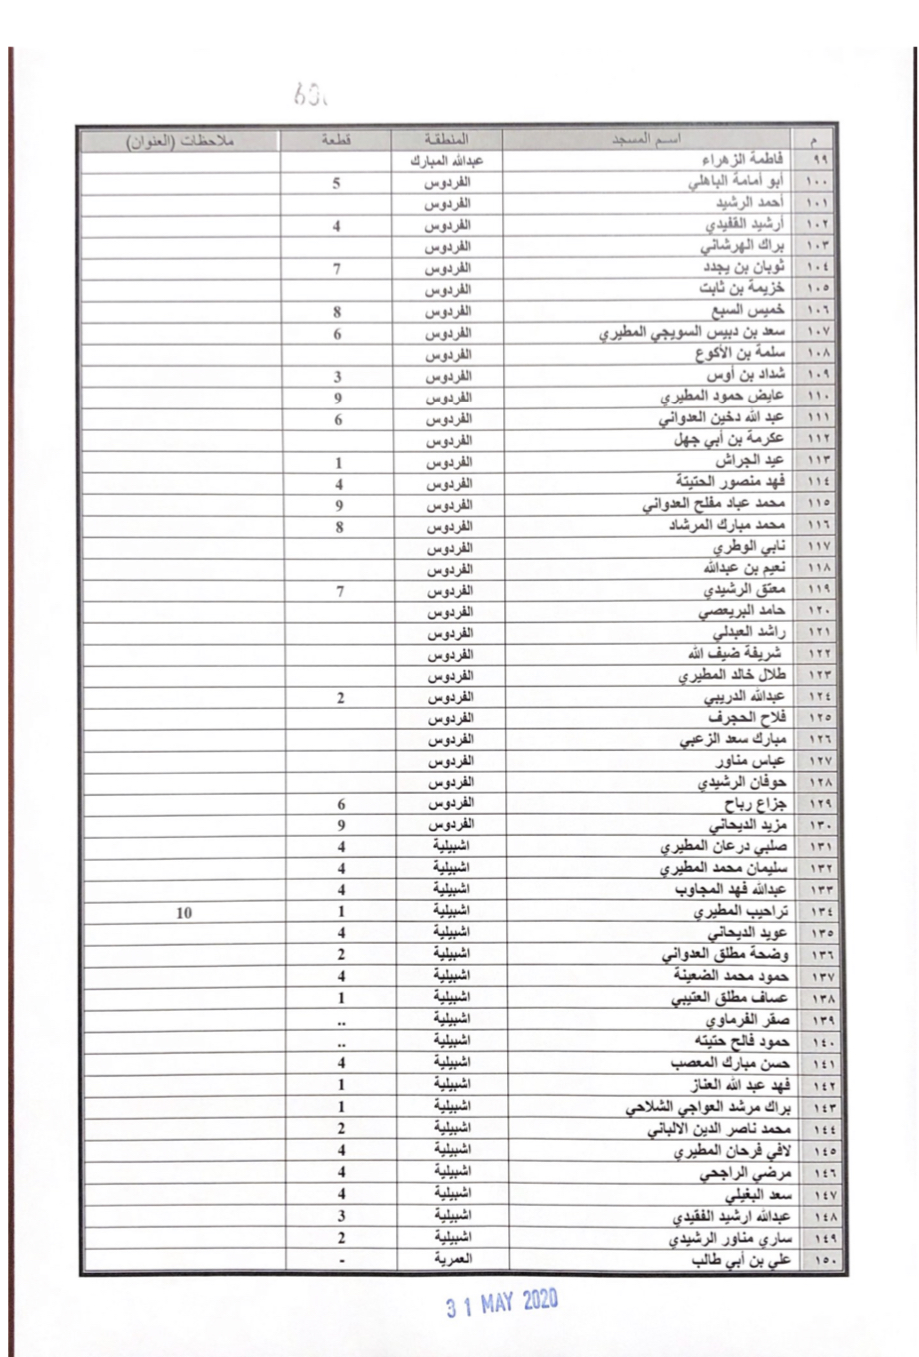 م اسم المسجد المنطقة قطعة ملاحظات (العنوان)
٩٩ فاطمة الزهراء عبدالله المبارك
١٠٠ أبو أمامة الباهلي الفردوس 5
١٠١ أحمد الرشيد الفردوس
١٠٢ أرشيد القفيدي الفردوس 4
١٠٣ براك الهرشاني الفردوس
١٠٤ ثوبان بن يجدد الفردوس 7
١٠٥ خزيمة بن ثابت الفردوس
١٠٦ خميس السبع الفردوس 8
١٠٧ سعد بن دبيس السويجي المطيري الفردوس 6
١٠٨ سلمة بن الأكوع الفردوس
١٠٩ شداد بن أوس الفردوس 3
١١٠ عايض حمود المطيري الفردوس 9
١١١ عبد الله دخين العدواني الفردوس 6
١١٢ عكرمة بن أبي جهل الفردوس
١١٣ عيد الجراش الفردوس 1
١١٤ فهد منصور الحتيتة الفردوس 4
١١٥ محمد عباد مفلح العدواني الفردوس 9
١١٦ محمد مبارك المرشاد الفردوس 8
١١٧ نابي الوطري الفردوس
١١٨ نعيم بن عبدالله الفردوس
١١٩ معتق الرشيدي الفردوس 7
١٢٠ حامد البريعصي الفردوس
١٢١ راشد العبدلي الفردوس
١٢٢ شريفة ضيف الله الفردوس
١٢٣ طلال خالد المطيري الفردوس
١٢٤ عبدالله الدريبي الفردوس 2
١٢٥ فلاح الحجرف الفردوس
١٢٦ مبارك سعد الزعبي الفردوس
١٢٧ عباس مناور الفردوس
١٢٨ حوفان الرشيدي الفردوس
١٢٩ جزاع رباح الفردوس 6
١٣٠ مزيد الديحاني الفردوس 9
١٣١ صلبي درعان المطيري اشبيلية 4
١٣٢ سليمان محمد المطيري اشبيلية 4
١٣٣ عبدالله فهد المجاوب اشبيلية 4
١٣٤ تراحيب المطيري اشبيلية 1 10
١٣٥ عويد الديحاني اشبيلية 4
١٣٦ وضحة مطلق العدواني اشبيلية 2
١٣٧ حمود محمد الضعينة اشبيلية 4
١٣٨ عساف مطلق العتيبي اشبيلية 1
١٣٩ صقر الفرماوي اشبيلية ..
١٤٠ حمود فالح حتيته اشبيلية ..
١٤١ حسن مبارك المعصب اشبيلية 4
١٤٢ فهد عبد الله العناز اشبيلية 1
١٤٣ براك مرشد العواجي الشلاحي اشبيلية 1
١٤٤ محمد ناصر الدين الالباني اشبيلية 2
١٤٥ لافي فرحان المطيري اشبيلية 4
١٤٦ مرضي الراجحي اشبيلية 4
١٤٧ سعد البغيلي اشبيلية 4
١٤٨ عبدالله ارشيد الفقيدي اشبيلية 3
١٤٩ ساري مناور الرشيدي اشبيلية 2
١٥٠ علي بن أبي طالب العمرية -
31 MAY 2020